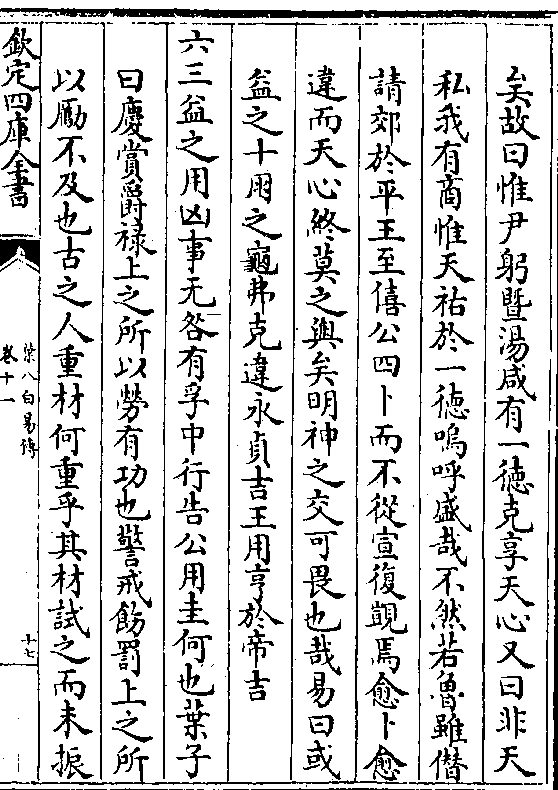 矣故曰惟尹躬暨湯咸有一德克享天心又曰非天
私我有商惟天祐於一德嗚呼盛哉不然若魯雖僭
請郊於平王至僖公四卜而不從宣復覬焉愈卜愈
違而天心終莫之與矣明神之交可畏也哉易曰或
益之十朋之龜弗克違永貞吉王用亨於帝吉
六三益之用凶事无咎有孚中行告公用圭何也葉子
曰慶賞爵祿上之所以勞有功也警戒飭罰上之所
以勵不及也古之人重材何重乎其材試之而未振
欽定四庫全書
葉八白易傳
卷十一
十七